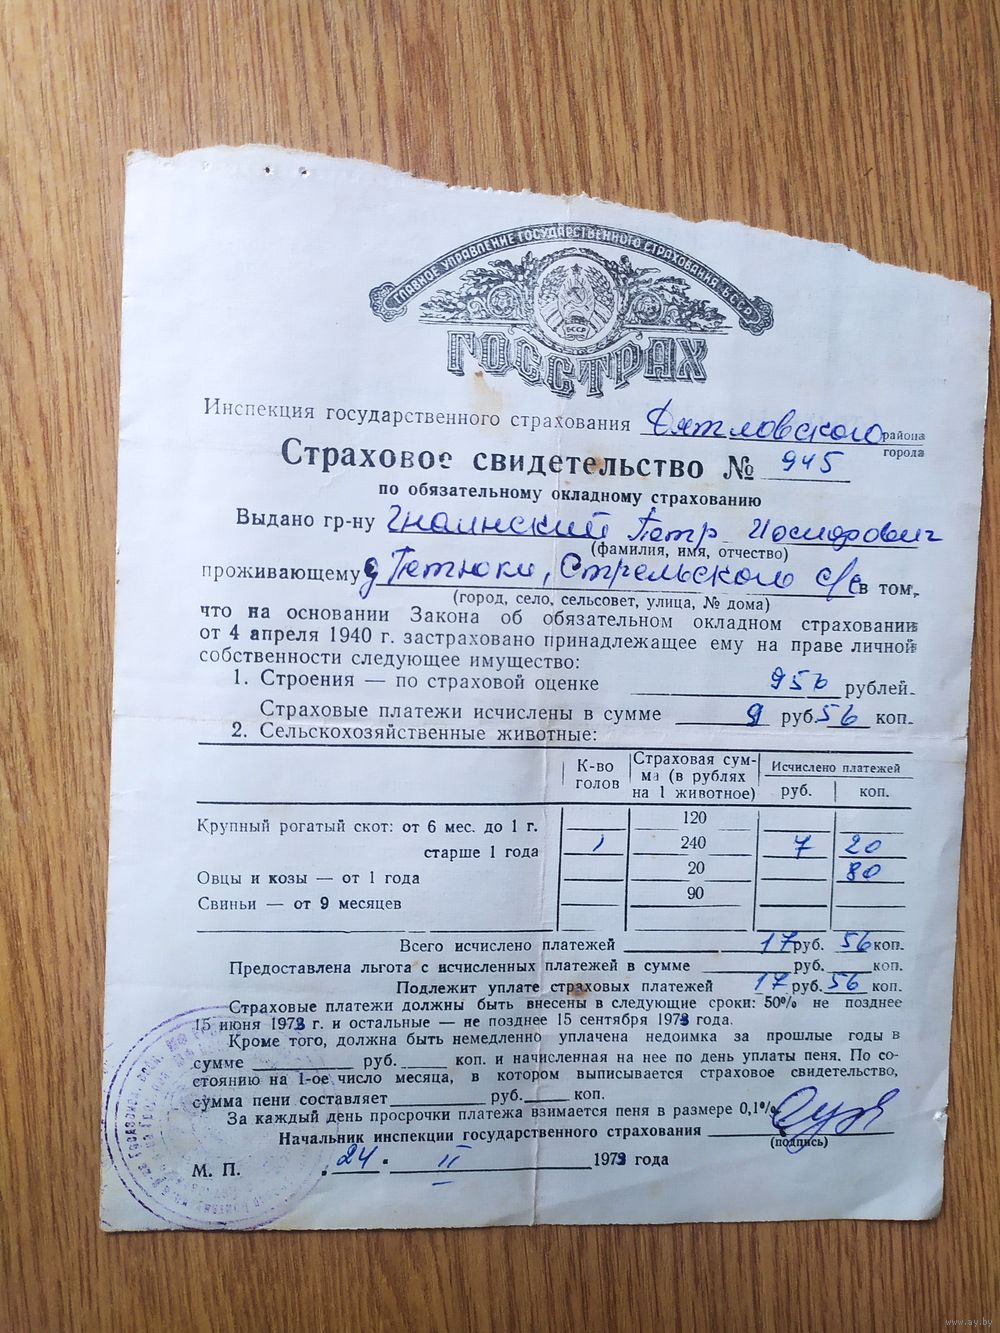 ГЛАВНОЕ УПРАВЛЕНИЕ ГОСУДАРСТВЕННОГО СТРАХОВАНИЯ БССР
БССР
ГОССТРАХ
Инспекция государственного страхования Дятловского района
города
Страховое свидетельство № 945
по обязательному окладному страхованию
Выдано гр-ну Гнаинский Петр Иосифович
(фамилия, имя, отчество)
проживающему д Петюки, Стрельского с/с в том,
(город, село, сельсовет, улица, № дома)
что на основании Закона об обязательном окладном страховании
от 4 апреля 1940 г. застраховано принадлежащее ему на праве личной
собственности следующее имущество:
1. Строения — по страховой оценке 956 рублей.
Страховые платежи исчислены в сумме 9 руб. 56 коп.
2. Сельскохозяйственные животные:
К-во голов Страховая сумма (в рублях на 1 животное) Исчислено платежей
руб. коп.
Крупный рогатый скот: от 6 мес. до 1 г. 120
старше 1 года 1 240 7 20
Овцы и козы — от 1 года 20 80
Свиньи — от 9 месяцев 90
Всего исчислено платежей 17 руб. 56 коп.
Предоставлена льгота с исчисленных платежей в сумме руб. коп.
Подлежит уплате страховых платежей 17 руб. 56 коп.
Страховые платежи должны быть внесены в следующие сроки: 50% не позднее
15 июня 1973 г. и остальные — не позднее 15 сентября 1973 года.
Кроме того, должна быть немедленно уплачена недоимка за прошлые годы в
сумме руб. коп. и начисленная на нее по день уплаты пеня. По со-
стоянию на 1-ое число месяца, в котором выписывается страховое свидетельство,
сумма пени составляет руб. коп.
За каждый день просрочки платежа взимается пеня в размере 0,1%.
Начальник инспекции государственного страхования
(подпись)
М. П. 24 II 1973 года
www.ay.by